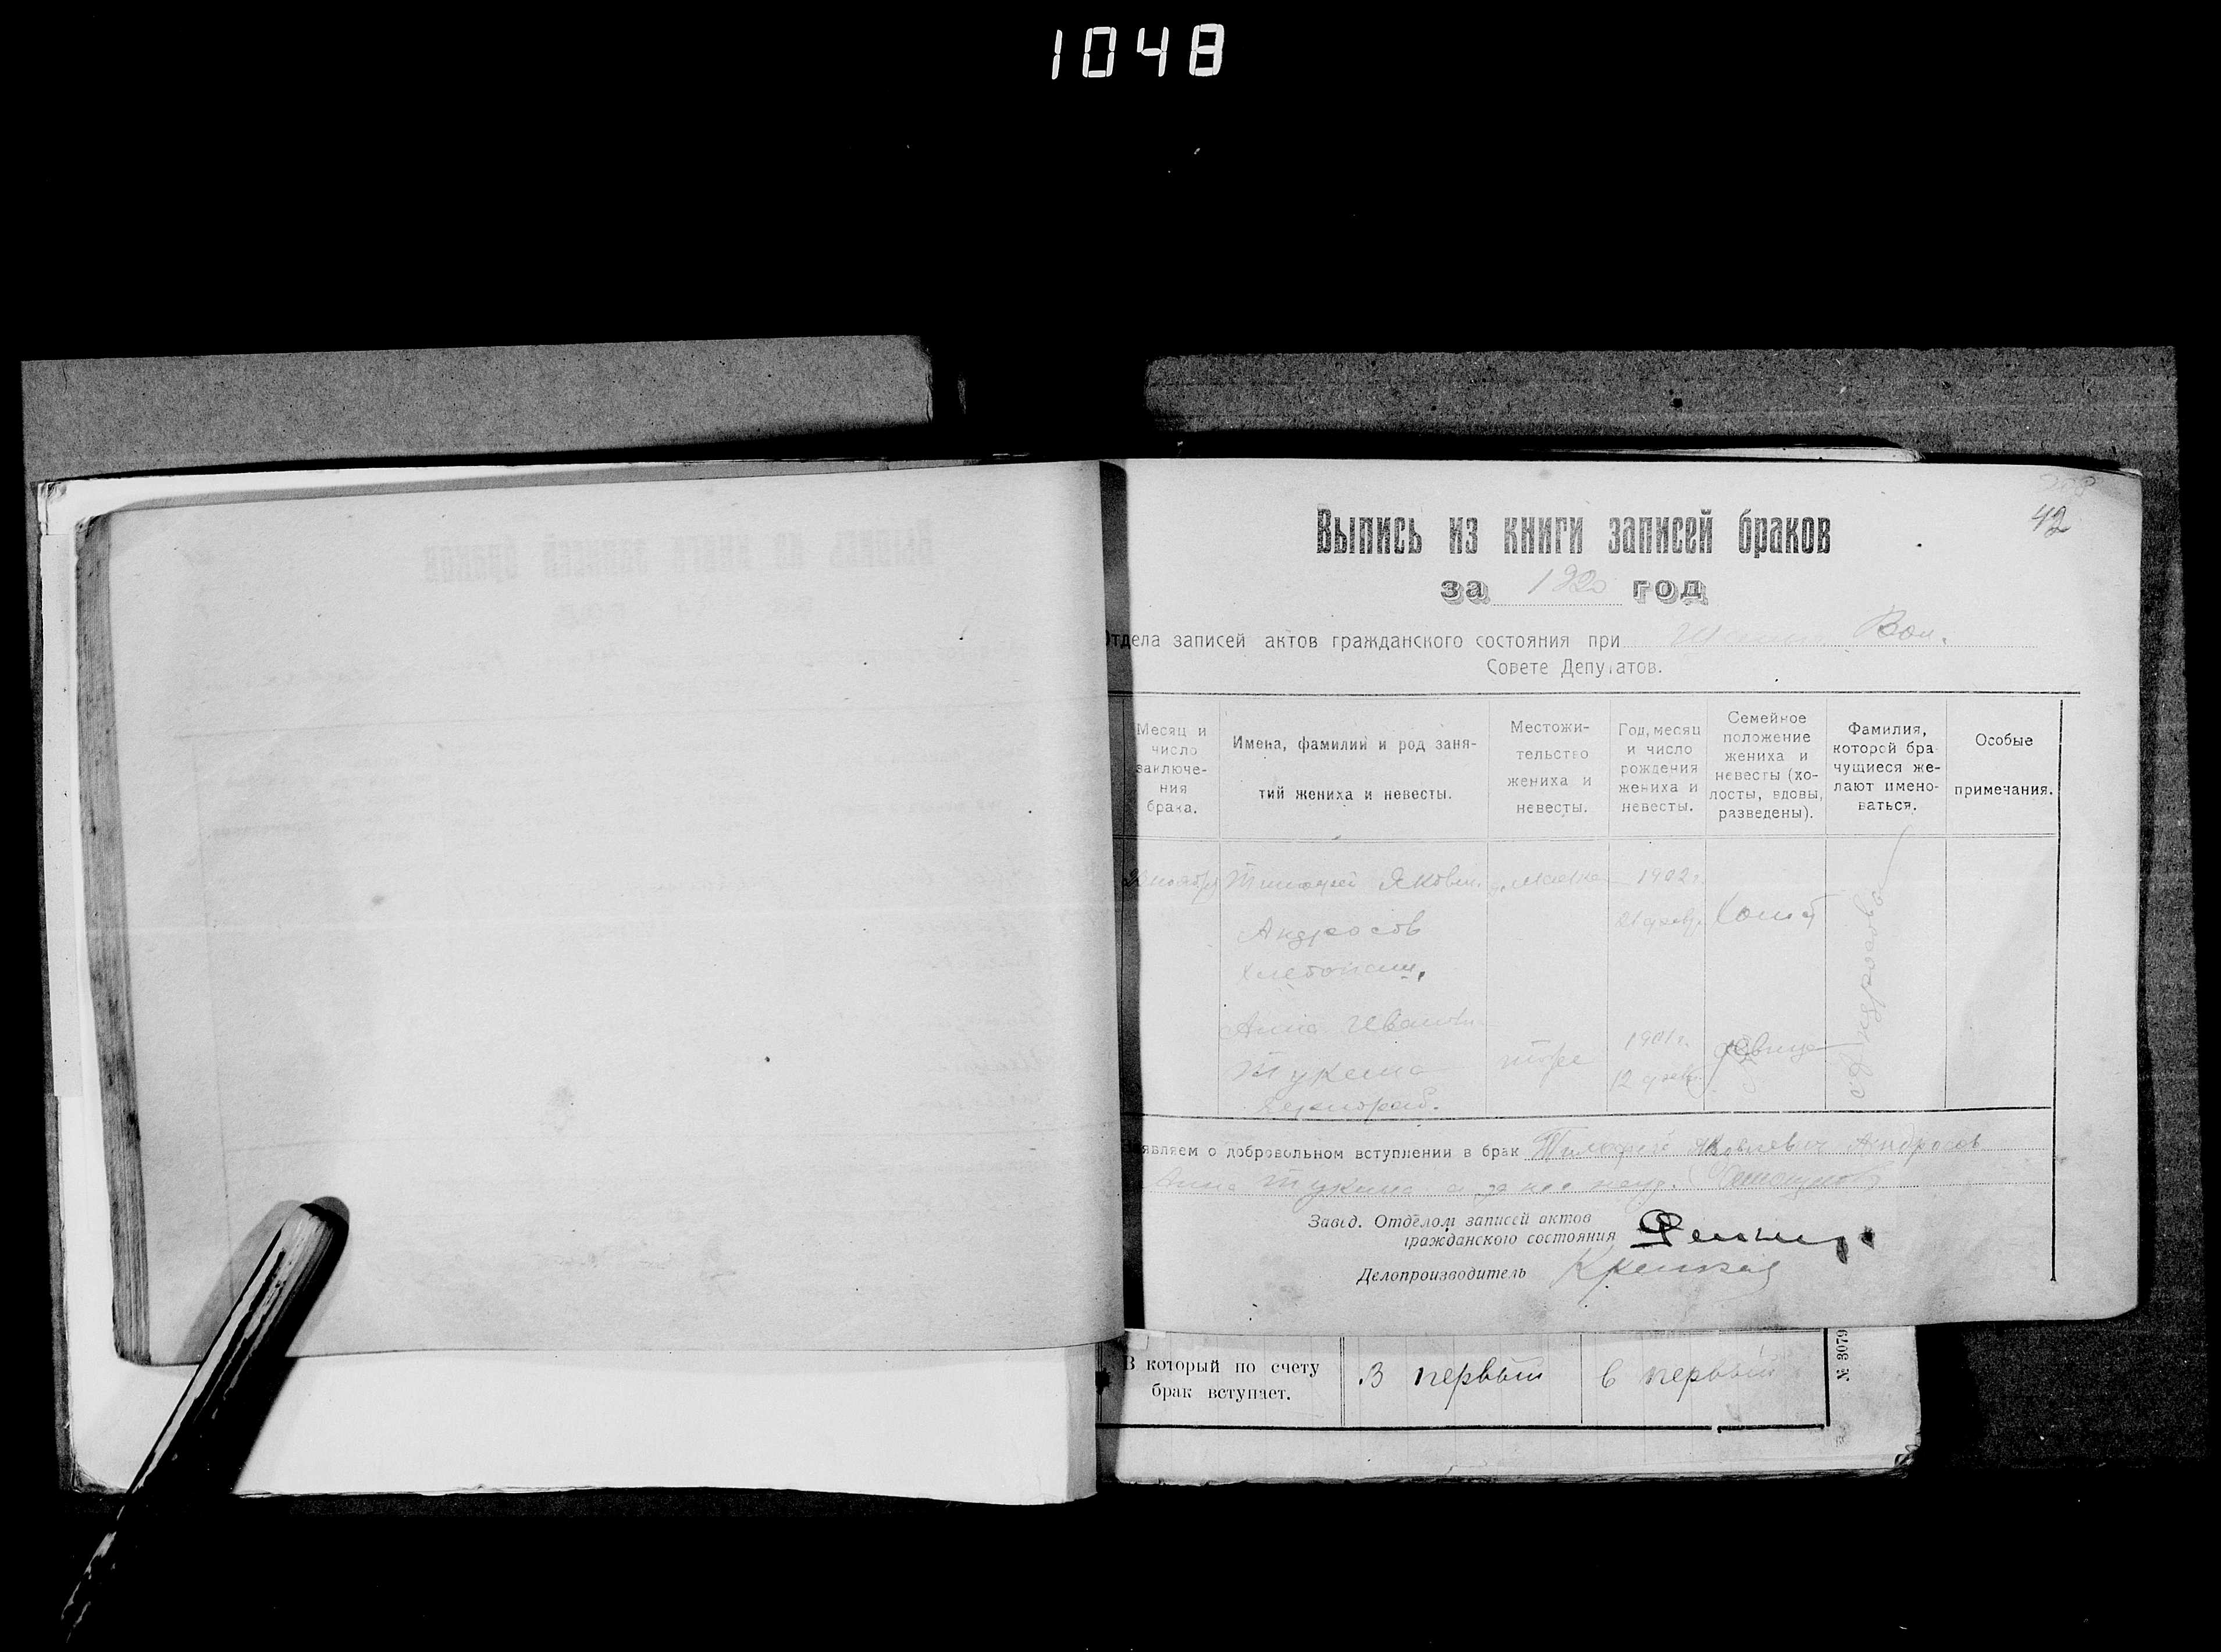 1048
42
Выпись из книги записей браков
за 1920 год
Отдела записей актов гражданского состояния при Вол.
Совете Депутатов.
Месяц и число заключения брака.
Имена, фамилии и род занятий жениха и невесты.
Местожительство жениха и невесты.
Год, месяц и число рождения жениха и невесты.
Семейное положение жениха и невесты (холосты, вдовы, разведены).
Фамилия, которой брачущиеся желают именоваться.
Особые примечания.
Тимофей Яковл. 1902 г.
Андросов
21 февр. Холост
хлебопаш.
Анна Иванов.
Тукина
тоже
1901 г.
12 февр.
девица
Андросовы
являем о добровольном вступлении в брак Тимофей Яковлевич Андросов
Анна Тукина а за нее негр.
Завед. Отделом записей актов
гражданского состояния
Делопроизводитель
В который по счету
брак вступает.
В первый
в первый
№ 3079